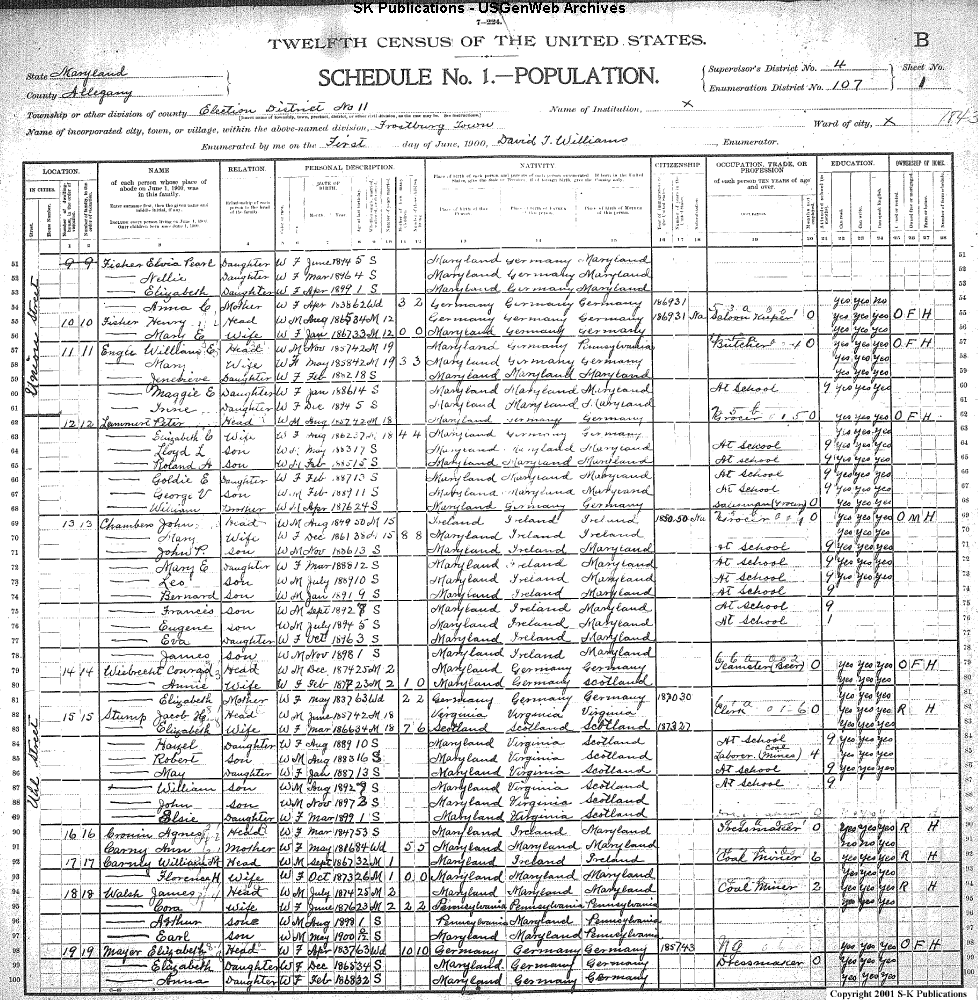 SK Publications - USGenWeb Archives
7-224.
TWELFTH CENSUS OF THE UNITED STATES.
B
State Maryland
County Allegany
SCHEDULE No. 1.—POPULATION.
Supervisor's District No. 4
Enumeration District No. 107
Sheet No. 1
Township or other division of county Election District No 11
Name of Institution, X
Name of incorporated city, town, or village, within the above-named division, Frostburg Town
Ward of city, X
Enumerated by me on the First day of June, 1900, David J. Williams, Enumerator.
LOCATION. NAME RELATION. PERSONAL DESCRIPTION. NATIVITY CITIZENSHIP OCCUPATION, TRADE, OR PROFESSION EDUCATION. OWNERSHIP OF HOME.
51 9 9 Fisher Elvia Pearl Daughter W F June 1894 5 S Maryland Germany Maryland
52 Nellie Daughter W F Mar 1896 4 S Maryland Germany Maryland
53 Elizabeth Daughter W F Apr 1899 1 S Maryland Germany Maryland
54 Anna C Mother W F Apr 1838 62 Wd 3 2 Germany Germany Germany 1869 31 yes yes no
55 10 10 Fisher Henry Head W M Aug 1865 34 M 12 Germany Germany Germany 1869 31 Na Saloon Keeper 0 yes yes yes O F H
56 Mary E Wife W F Jan 1867 33 M 12 0 0 Maryland Germany Germany yes yes yes
57 11 11 Engle William E Head W M Nov 1857 42 M 19 Maryland Germany Pennsylvania Butcher 0 yes yes yes O F H
58 Mary Wife W F May 1858 42 M 19 3 3 Maryland Germany Germany yes yes yes
59 Genevieve Daughter W F Feb 1882 18 S Maryland Maryland Maryland yes yes yes
60 Maggie E Daughter W F Jan 1886 14 S Maryland Maryland Maryland At School 9 yes yes yes
61 Irine Daughter W F Dec 1894 5 S Maryland Maryland Maryland
62 12 12 Lammert Peter Head W M Aug 1857 42 M 18 Maryland Germany Germany Grocer 0 yes yes yes O F H
63 Elizabeth E Wife W F Aug 1862 37 M 18 4 4 Maryland Germany Germany yes yes yes
64 Lloyd L son W M May 1883 17 S Maryland Maryland Maryland At school 9 yes yes yes
65 Roland H son W M Feb 1885 15 S Maryland Maryland Maryland At school 9 yes yes yes
66 Goldie E Daughter W F Feb 1887 13 S Maryland Maryland Maryland At school 9 yes yes yes
67 George V son W M Feb 1889 11 S Maryland Maryland Maryland At School 9 yes yes yes
68 William Brother W M Apr 1876 24 S Maryland Germany Germany Salesman (Grocery) 0 yes yes yes
69 13 13 Chambers John Head W M Aug 1849 50 M 15 Ireland Ireland Ireland 1850 50 Na Grocer 0 yes yes yes O M H
70 Mary Wife W F Dec 1861 38 M 15 8 8 Maryland Ireland Ireland yes yes yes
71 John P. son W M Nov 1886 13 S Maryland Ireland Maryland At school 9 yes yes yes
72 Mary E Daughter W F Mar 1888 12 S Maryland Ireland Maryland At school 9 yes yes yes
73 Leo son W M July 1889 10 S Maryland Ireland Maryland At school 9 yes yes yes
74 Bernard son W M Jan 1891 9 S Maryland Ireland Maryland At school 9
75 Francis son W M Sept 1892 7 S Maryland Ireland Maryland At school 9
76 Eugene son W M July 1894 5 S Maryland Ireland Maryland At school 1
77 Eva Daughter W F Oct 1896 3 S Maryland Ireland Maryland
78 James son W M Nov 1898 1 S Maryland Ireland Maryland
79 14 14 Weibrecht Conrad Head W M Dec 1874 25 M 2 Maryland Germany Germany Teamster (Beer) 0 yes yes yes O F H
80 Annie Wife W F Feb 1877 23 M 2 1 0 Maryland Germany Scotland yes yes yes
81 Elizabeth Mother W F May 1837 63 Wd 2 2 Germany Germany Germany 1870 30 yes yes yes
82 15 15 Stump Jacob H Head W M June 1857 42 M 18 Virginia Virginia Virginia Clerk 0 yes yes yes R H
83 Elizabeth Wife W F Mar 1866 34 M 18 7 6 Scotland Scotland Scotland 1873 27 yes yes yes
84 Hazel Daughter W F Aug 1889 10 S Maryland Virginia Scotland At School 9 yes yes yes
85 Robert Son W M Aug 1883 16 S Maryland Virginia Scotland Laborer (Coal Mines) 4 yes yes yes
86 May Daughter W F Jan 1887 13 S Maryland Virginia Scotland At school 9 yes yes yes
87 William Son W M Aug 1892 7 S Maryland Virginia Scotland At School 9
88 John Son W M Nov 1897 2 S Maryland Virginia Scotland
89 Elsie Daughter W F Mar 1899 1 S Maryland Virginia Scotland
90 16 16 Cronin Agnes Head W F Mar 1847 53 Maryland Ireland Maryland Dressmaker 0 yes yes yes R H
91 Carny Ann Mother W F May 1816 84 Wd 5 5 Maryland Maryland Maryland no no yes
92 17 17 Carnly William H Head W M Sept 1867 32 M 1 Maryland Ireland Ireland Coal Miner 6 yes yes yes R H
93 Florence H Wife W F Oct 1873 26 M 1 0 0 Maryland Maryland Maryland yes yes yes
94 18 18 Walsh James Head W M July 1874 25 M 2 Maryland Maryland Maryland Coal Miner 2 yes yes yes R H
95 Cora Wife W F June 1876 23 M 2 2 2 Pennsylvania Pennsylvania Pennsylvania yes yes yes
96 Arthur son W M Aug 1898 1 S Pennsylvania Maryland Pennsylvania
97 Earl son W M May 1900 S Maryland Maryland Pennsylvania
98 19 19 Mayer Elizabeth Head W F Apr 1837 63 Wd 10 10 Germany Germany Germany 1857 43 yes yes yes O F H
99 Elizabeth Daughter W F Dec 1865 34 S Maryland Germany Germany Dressmaker 0 yes yes yes
100 Anna Daughter W F Feb 1868 32 S Maryland Germany Germany yes yes yes
Union Street
Uhl Street
Copyright 2001 S-K Publications